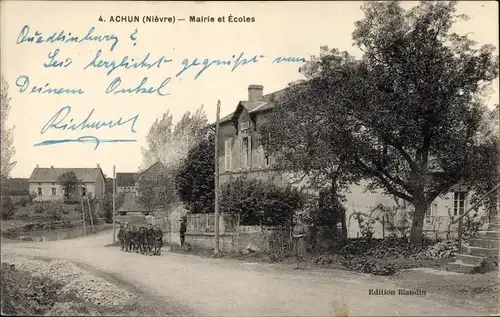 4. ACHUN (Nièvre) — Mairie et Écoles
Quedlinburg
Sei herzlichst gegrüsst von
Deinem Onkel
Richard
Edition Blandin